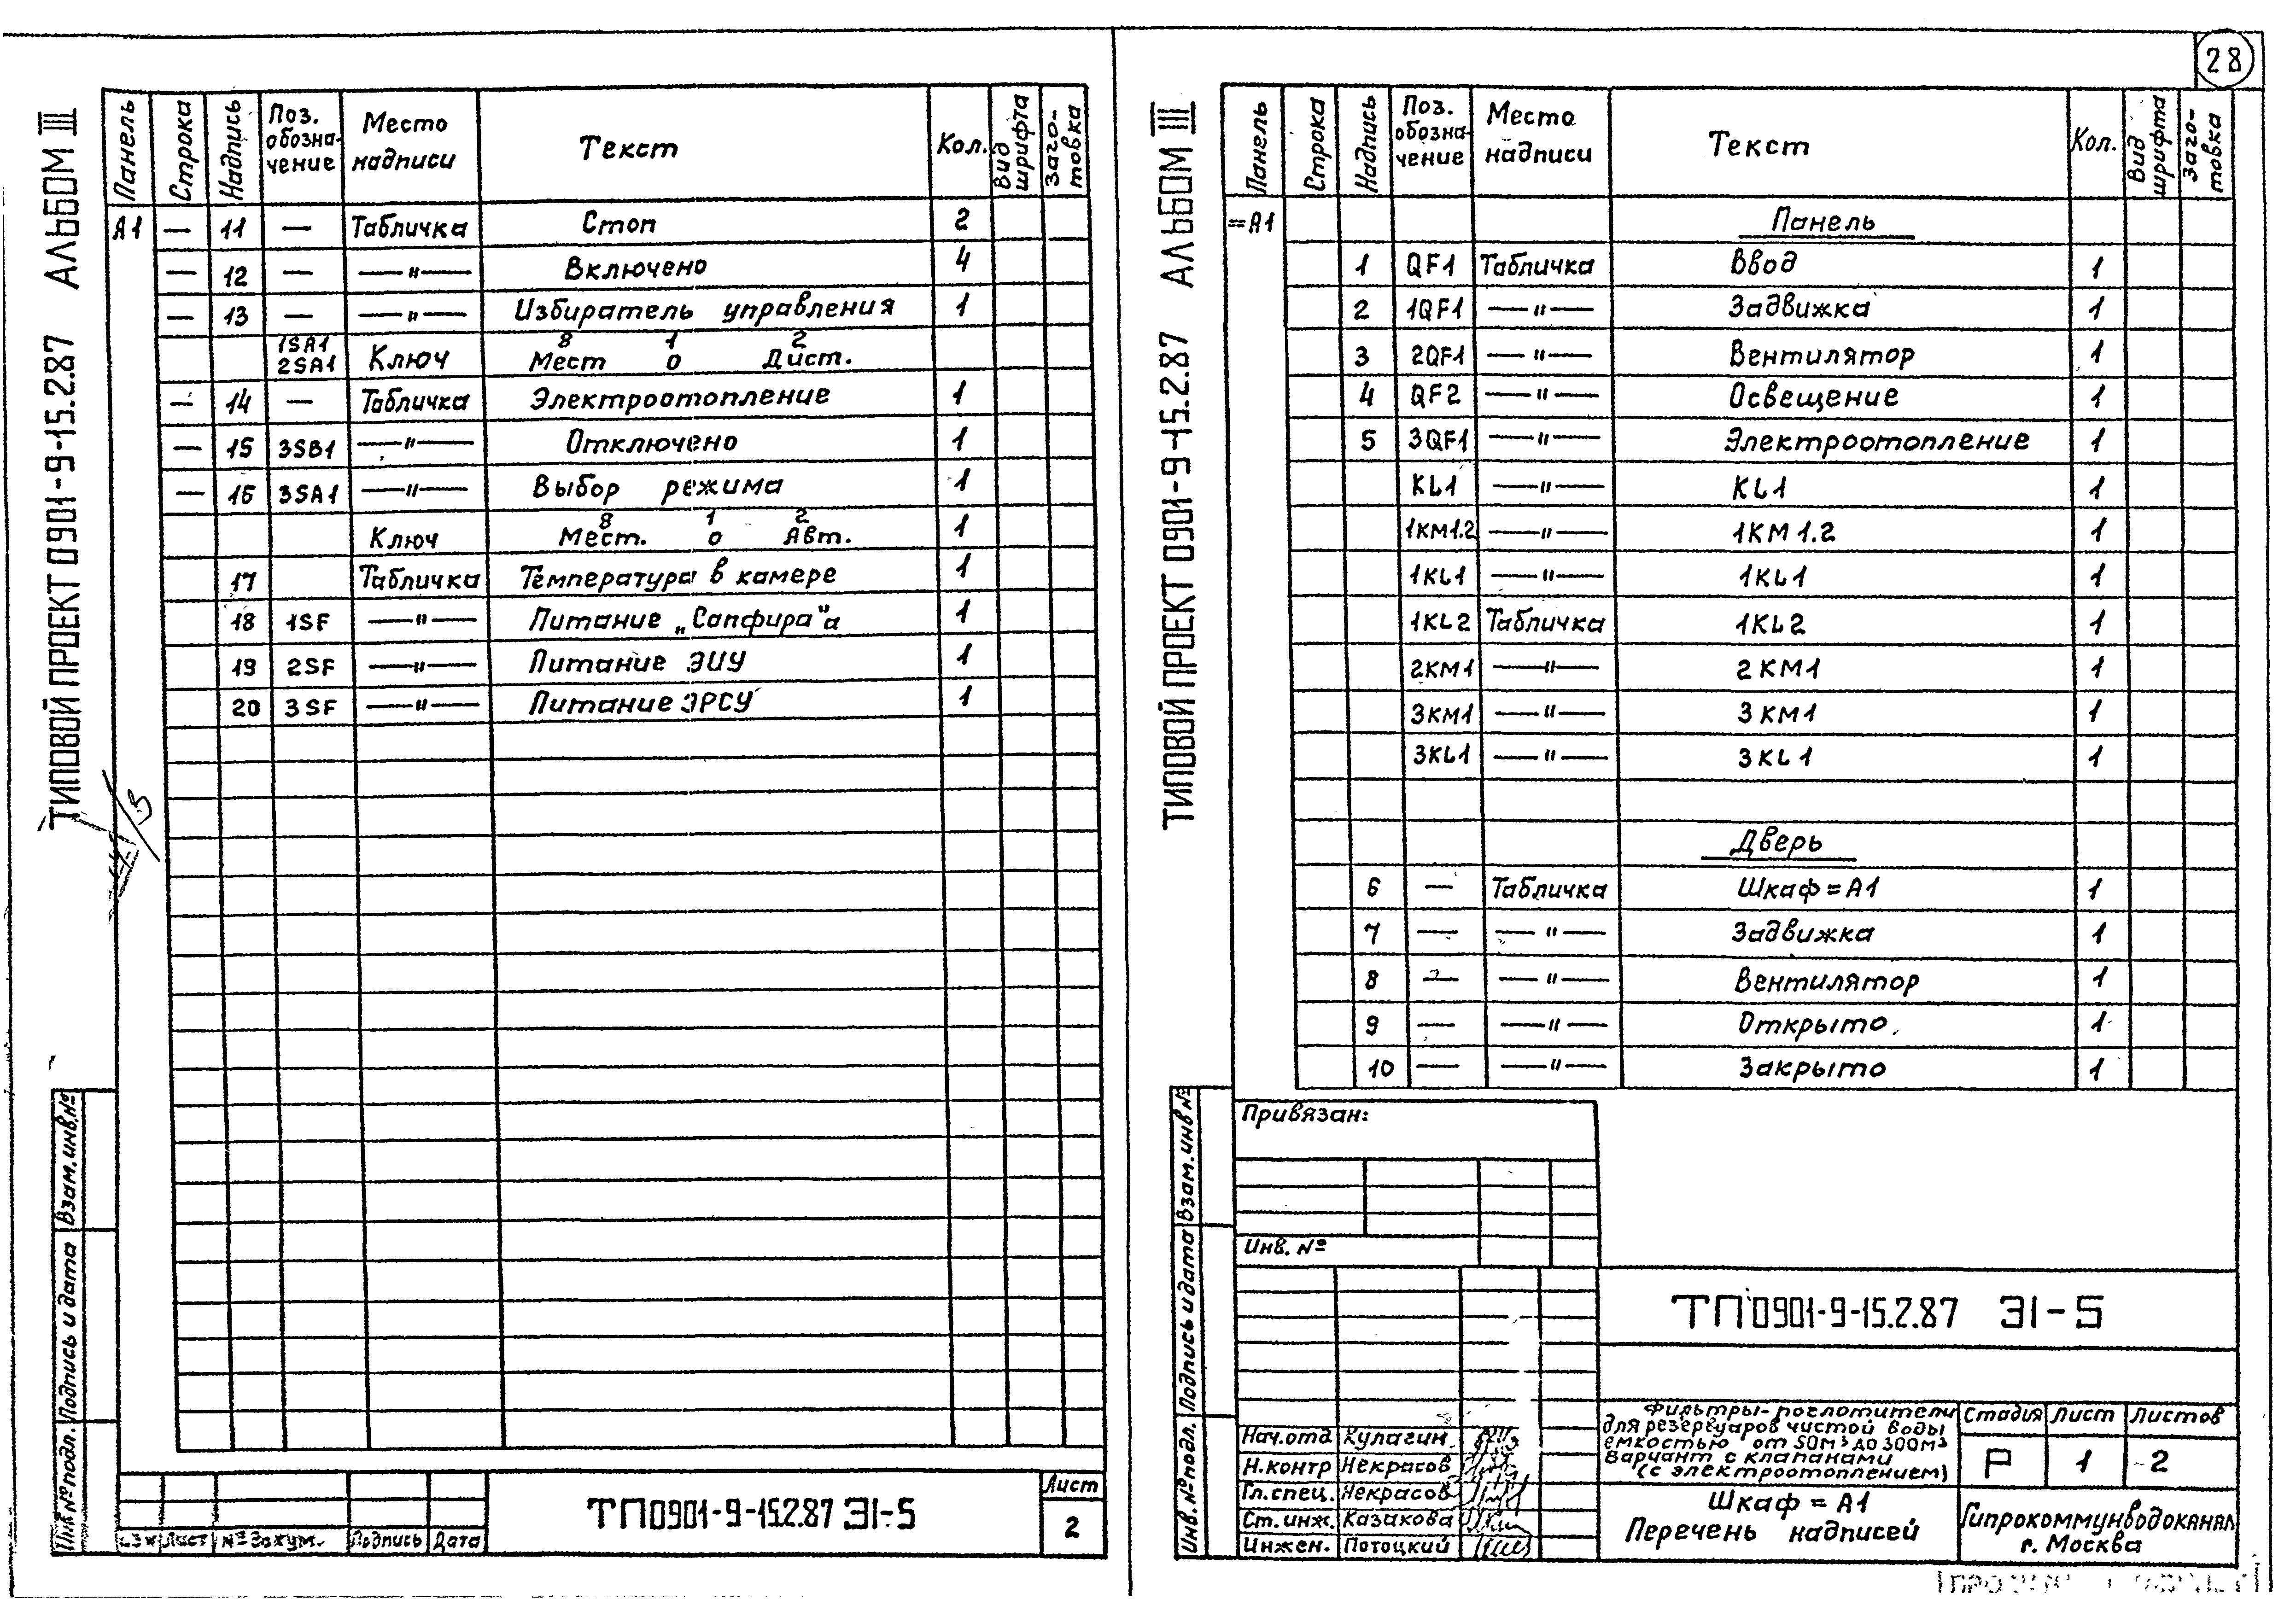 28
ТИПОВОЙ ПРОЕКТ 0901-9-15.2.87 АЛЬБОМ III
Панель Строка Надпись Поз. обозна-чение Место надписи Текст Кол. Вид шрифта Заго-товка
А1 — 11 — Табличка Стоп 2
— 12 — —"— Включено 4
— 13 — —"— Избиратель управления 1
1SA1 8 1 2
2SA1 Ключ Мест о Дист.
— 14 — Табличка Электроотопление 1
— 15 3SB1 —"— Отключено 1
— 16 3SA1 —"— Выбор режима 1
8 1 2
Ключ Мест. о Авт. 1
17 Табличка Температура в камере 1
18 1SF —"— Питание „Сапфира"а 1
19 2SF —"— Питание ЭИУ 1
20 3SF —"— Питание ЭРСУ 1
Взам.инв.№
Подпись и дата
Инв.№ подл.
Лист №докум. Подпись Дата
ТП0901-9-15.2.87 ЭI-5
Лист
2
ТИПОВОЙ ПРОЕКТ 0901-9-15.2.87 АЛЬБОМ III
Панель Строка Надпись Поз. обозна-чение Место надписи Текст Кол. Вид шрифта Заго-товка
=А1 Панель
1 QF1 Табличка Ввод 1
2 1QF1 —"— Задвижка 1
3 2QF1 —"— Вентилятор 1
4 QF2 —"— Освещение 1
5 3QF1 —"— Электроотопление 1
KL1 —"— KL1 1
1KM1.2 —"— 1KM1.2 1
1KL1 —"— 1KL1 1
1KL2 Табличка 1KL2 1
2KM1 —"— 2KM1 1
3KM1 —"— 3KM1 1
3KL1 —"— 3KL1 1
Дверь
6 — Табличка Шкаф=А1 1
7 — —"— Задвижка 1
8 — —"— Вентилятор 1
9 — —"— Открыто 1
10 — —"— Закрыто 1
Взам.инв №
Подпись и дата
Инв.№ подл.
Привязан:
Инв. №
ТП0901-9-15.2.87 ЭI-5
Нач.отд Кулагин
Н.контр Некрасов
Гл.спец. Некрасов
Ст.инж. Казакова
Инжен. Потоцкий
Фильтры-поглотители
для резервуаров чистой воды
емкостью от 50м³ до 300м³
Вариант с клапанами
(с электроотоплением)
Стадия Лист Листов
Р 1 2
Шкаф = А1
Перечень надписей
Гипрокоммунводоканал
г. Москва